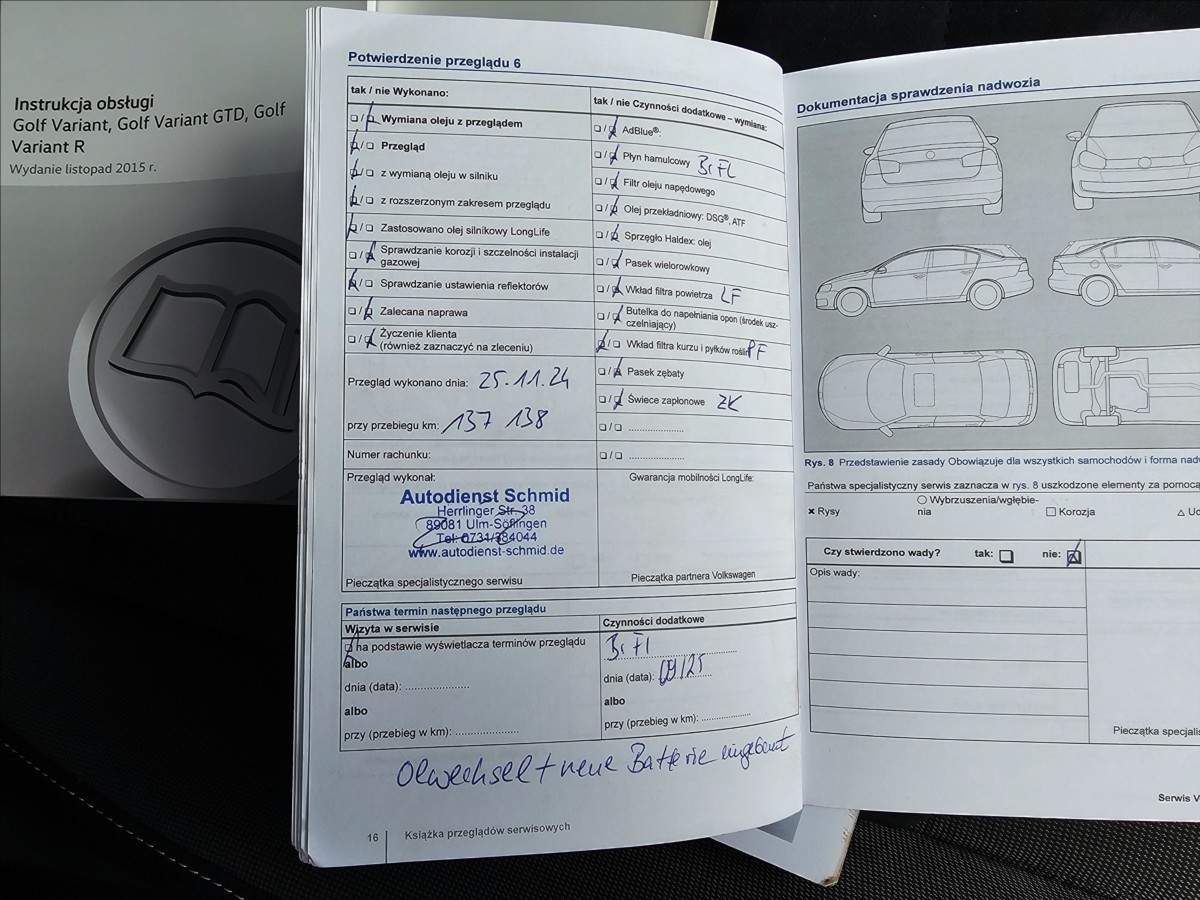 Instrukcja obsługi
Golf Variant, Golf Variant GTD, Golf
Variant R
Wydanie listopad 2015 r.
Potwierdzenie przeglądu 6
tak / nie Wykonano:
❏ / ❏ Wymiana oleju z przeglądem
❏ / ❏ Przegląd
❏ / ❏ z wymianą oleju w silniku
❏ / ❏ z rozszerzonym zakresem przeglądu
❏ / ❏ Zastosowano olej silnikowy LongLife
❏ / ❏ Sprawdzanie korozji i szczelności instalacji
gazowej
❏ / ❏ Sprawdzanie ustawienia reflektorów
❏ / ❏ Zalecana naprawa
❏ / ❏ Życzenie klienta
(również zaznaczyć na zleceniu)
Przegląd wykonano dnia: 25.11.24
przy przebiegu km: 137 138
Numer rachunku:
Przegląd wykonał:
Autodienst Schmid
Herrlinger Str. 38
89081 Ulm-Söflingen
Tel. 0731/384044
www.autodienst-schmid.de
Pieczątka specjalistycznego serwisu
tak / nie Czynności dodatkowe – wymiana:
❏ / ❏ AdBlue®:
❏ / ❏ Płyn hamulcowy BrFl
❏ / ❏ Filtr oleju napędowego
❏ / ❏ Olej przekładniowy: DSG®, ATF
❏ / ❏ Sprzęgło Haldex: olej
❏ / ❏ Pasek wielorowkowy
❏ / ❏ Wkład filtra powietrza LF
❏ / ❏ Butelka do napełniania opon (środek usz-
czelniający)
❏ / ❏ Wkład filtra kurzu i pyłków roślin PF
❏ / ❏ Pasek zębaty
❏ / ❏ Świece zapłonowe ZK
❏ / ❏ ....................
❏ / ❏ ....................
Gwarancja mobilności LongLife:
Pieczątka partnera Volkswagen
Państwa termin następnego przeglądu
Wizyta w serwisie
❏ na podstawie wyświetlacza terminów przeglądu
albo
dnia (data): ......................
albo
przy (przebieg w km): ......................
Czynności dodatkowe
BrFl
dnia (data): 09/25
albo
przy (przebieg w km): .................
Ölwechsel + neue Batterie eingebaut
16 Książka przeglądów serwisowych
Dokumentacja sprawdzenia nadwozia
Rys. 8 Przedstawienie zasady Obowiązuje dla wszystkich samochodów i forma
Państwa specjalistyczny serwis zaznacza w rys. 8 uszkodzone elementy za pomocą
× Rysy
○ Wybrzuszenia/wgłębie-
nia
☐ Korozja
△
Czy stwierdzono wady? tak: ❏ nie: ❏
Opis wady:
Pieczątka
Serwis